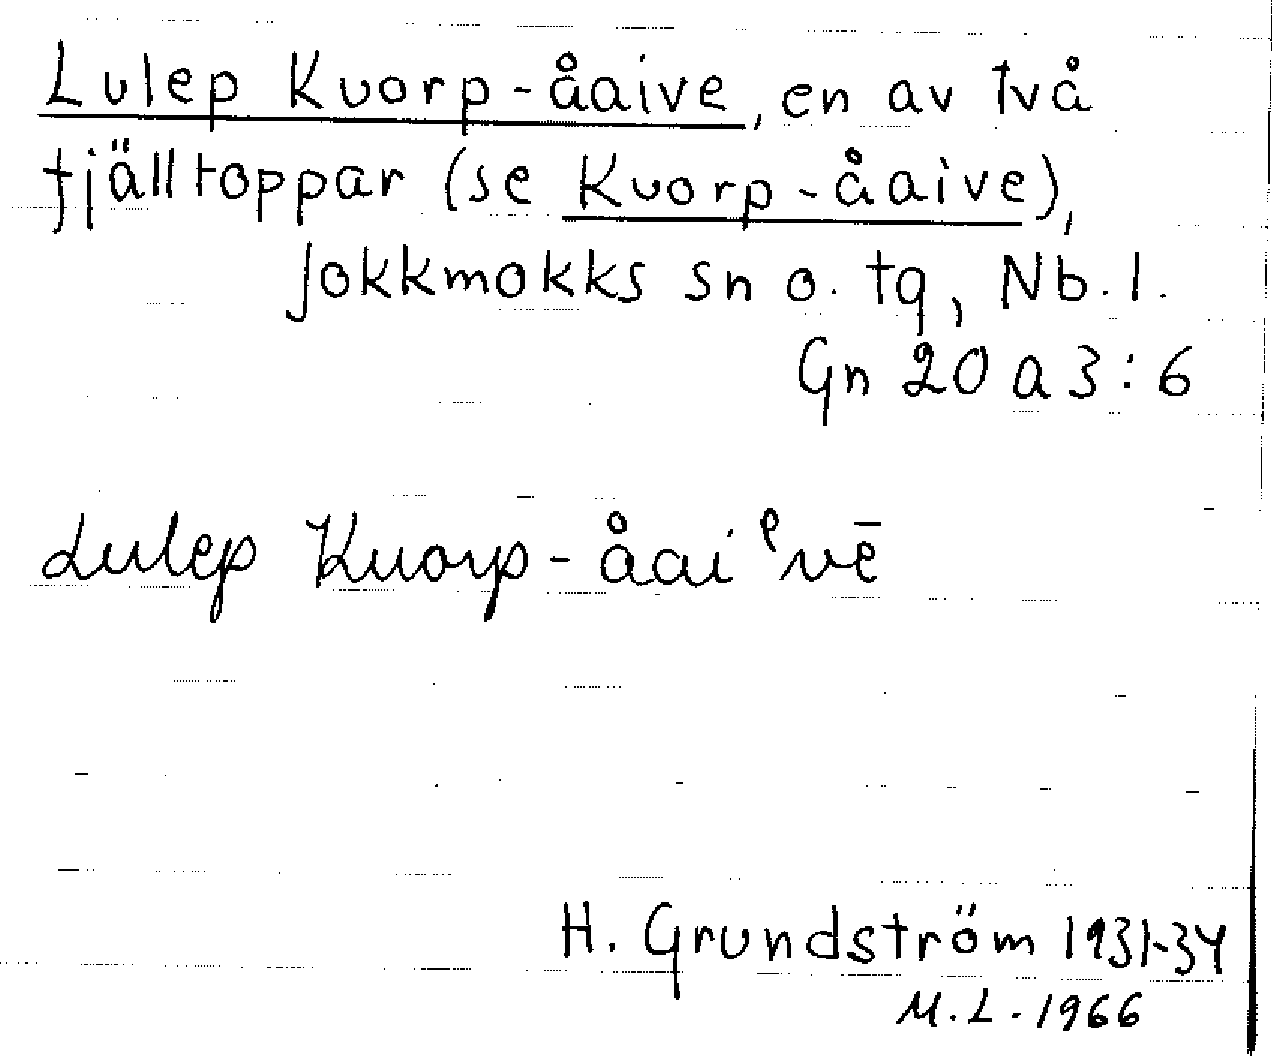 Lulep Kuorp-åaive, en av två
fjälltoppar (se Kuorp-åaive),
Jokkmokks sn o. tg, Nb.l.
Gn 20 a 3:6
Lulep Kuorp-åaiᵉvē
H. Grundström 1931-34
M.L. 1966